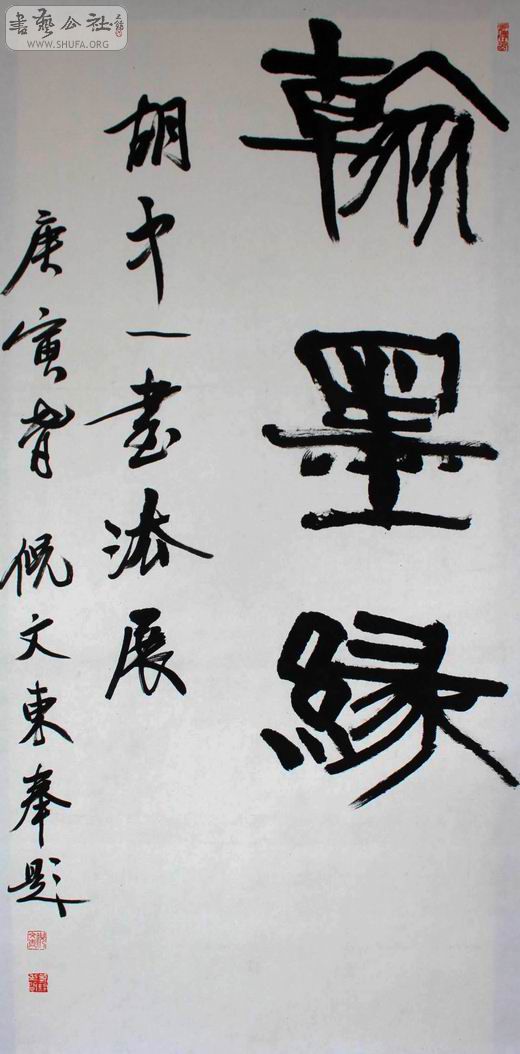 翰墨緣
胡中一書法展
庚寅春 倪文東奉題
書藝公社
WWW.SHUFA.ORG